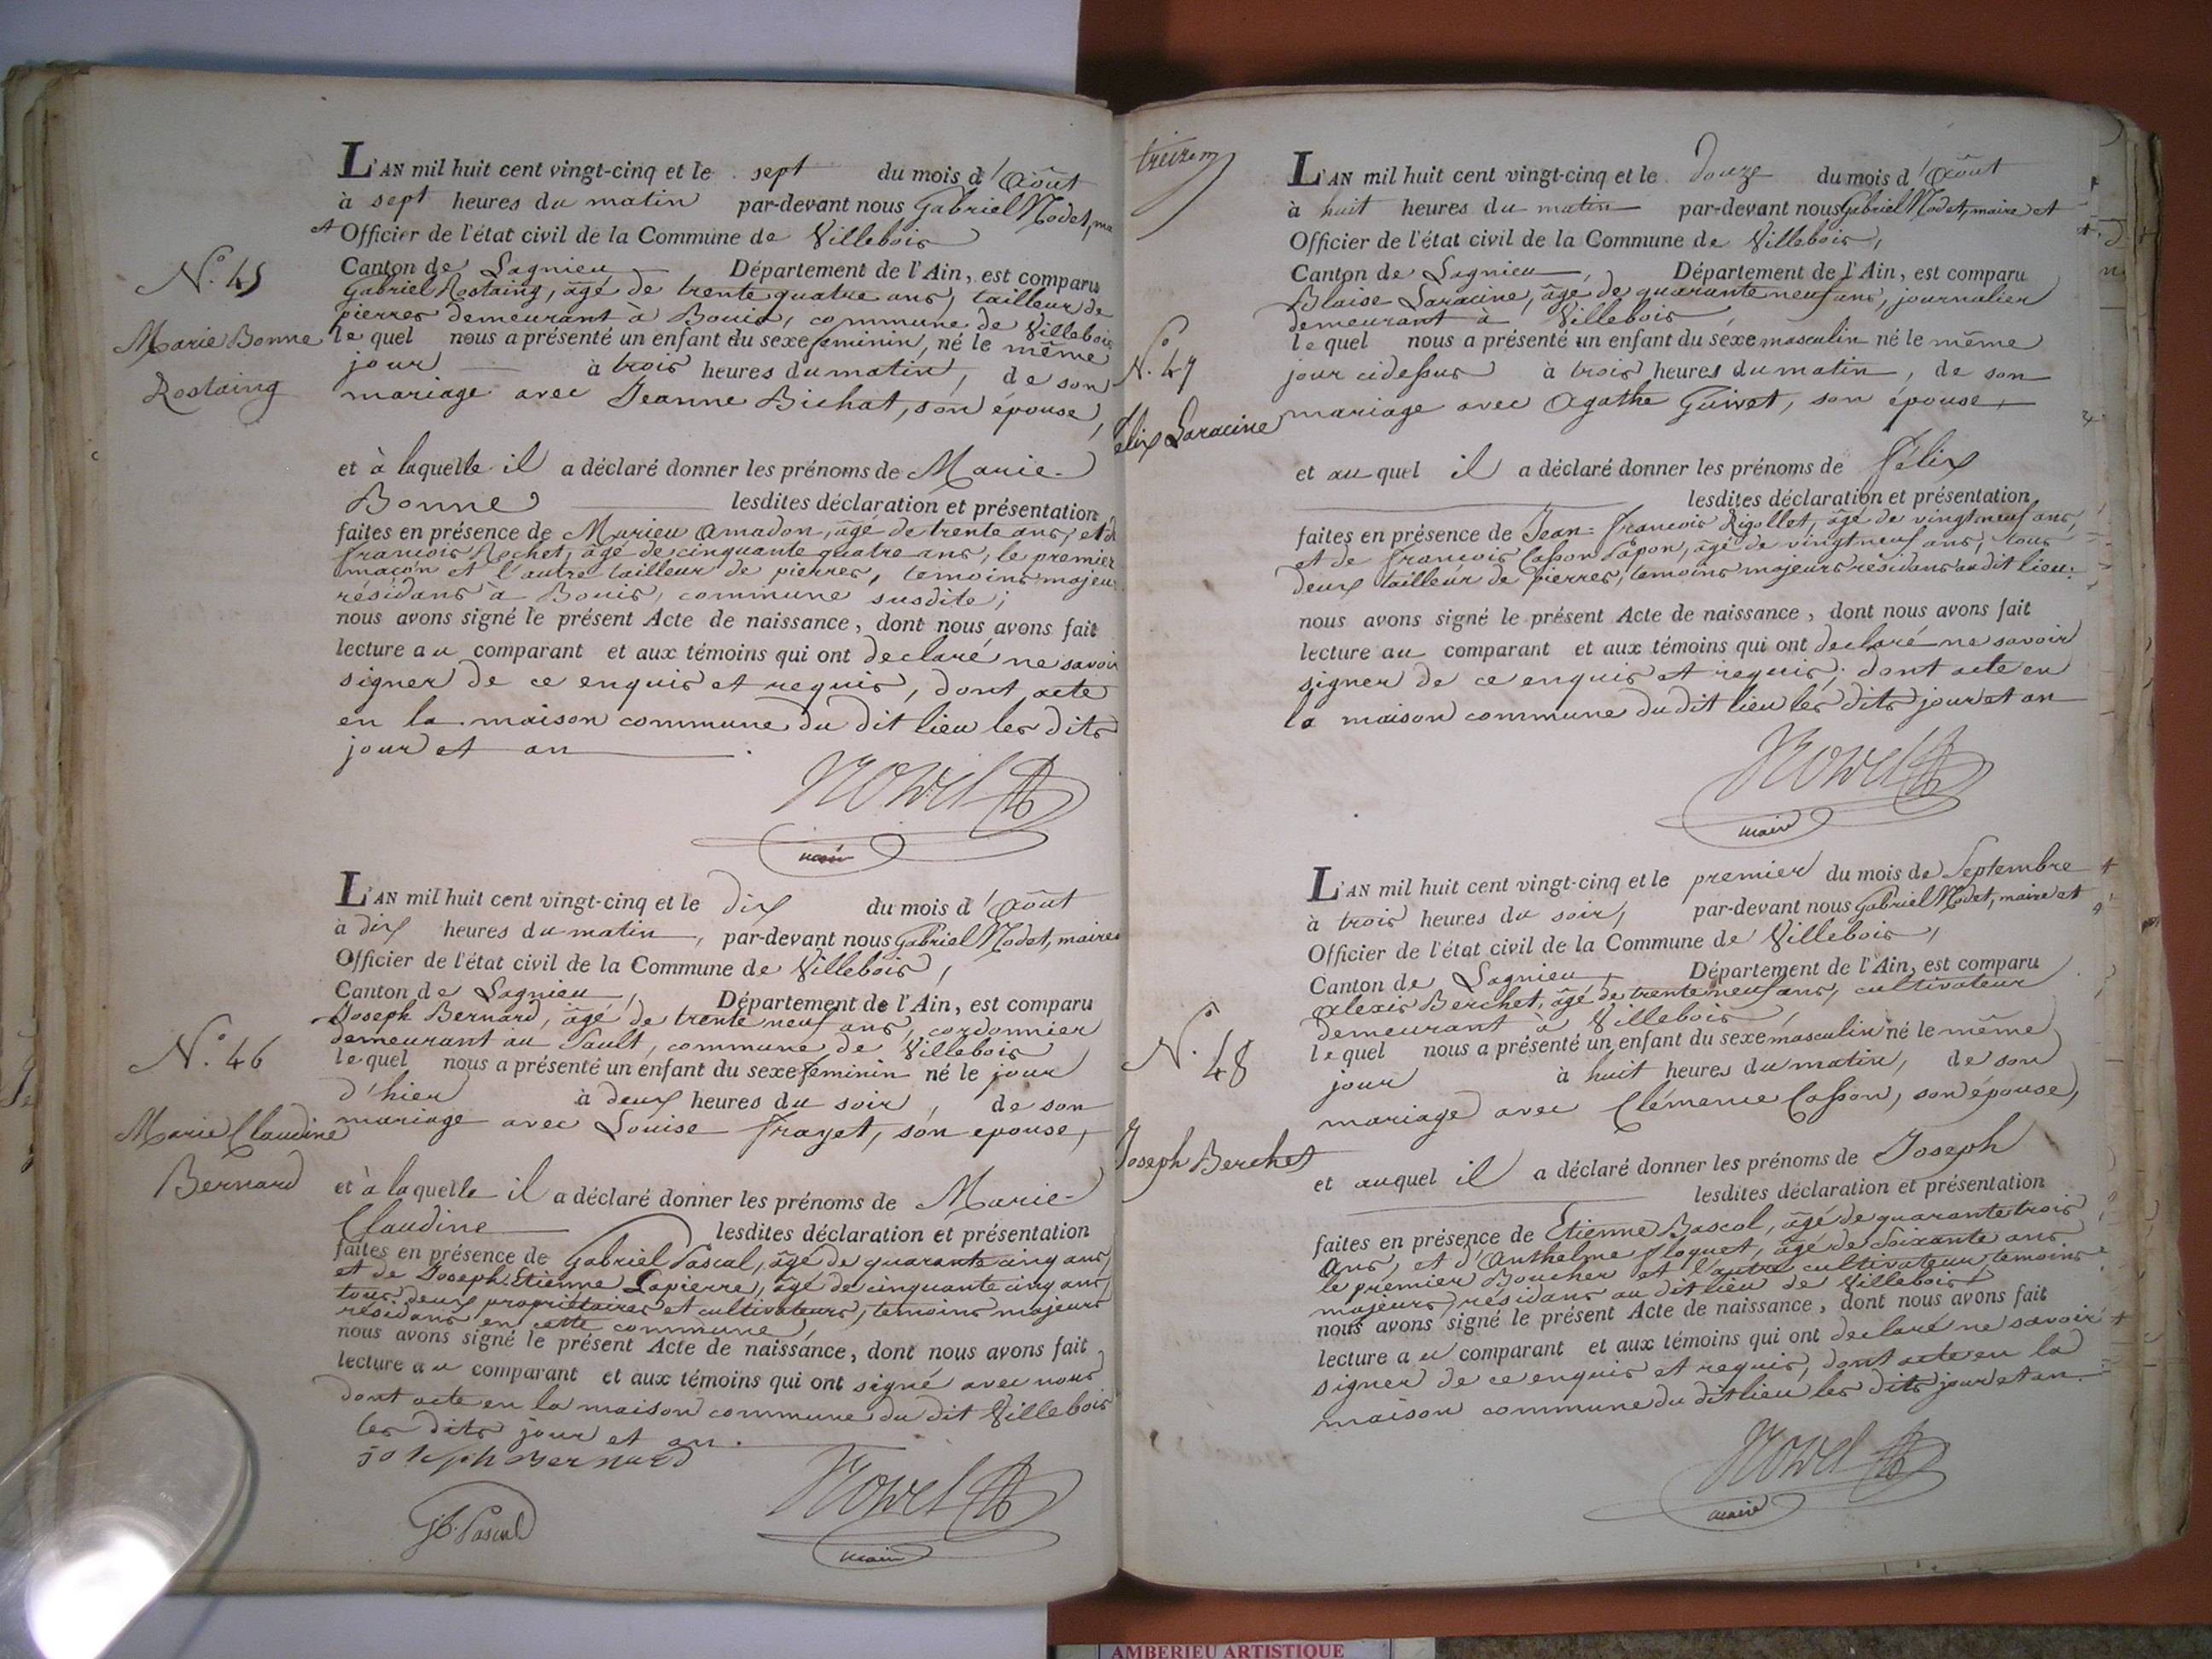 L'AN mil huit cent vingt-cinq et le sept du mois d'Août
à sept heures du matin par-devant nous Gabriel Nodet, ma
et Officier de l'état civil de la Commune de Villebois
Canton de Lagnieu Département de l'Ain, est comparu
Gabriel Rostaing, âgé de trente quatre ans, tailleur de
pierres demeurant à Bouis, commune de Villebois
le quel nous a présenté un enfant du sexe feminin, né le même
jour à trois heures du matin, de son
mariage avec Jeanne Bichat, son épouse,
N.o 45
Marie Bonne
Rostaing
et à laquelle il a déclaré donner les prénoms de Marie-
Bonne lesdites déclaration et présentation
faites en présence de Marieu Amadon, âgé de trente ans, et d
françois Rochet, âgé de cinquante quatre ans, le premier
maçon et l'autre tailleur de pierres, temoins majeu
résidans à Bouis, commune susdite;
nous avons signé le présent Acte de naissance, dont nous avons fait
lecture au comparant et aux témoins qui ont declaré ne savoir
signer de ce enquis et requis, dont acte
en la maison commune du dit lieu les dits
jour et an
maire
L'AN mil huit cent vingt-cinq et le dix du mois d'Août
à dix heures du matin, par-devant nous Gabriel Nodet, maire
Officier de l'état civil de la Commune de Villebois,
Canton de Lagnieu, Département de l'Ain, est comparu
Joseph Bernard, âgé de trente neuf ans, cordonnier
demeurant au Sault, commune de Villebois
le quel nous a présenté un enfant du sexe féminin né le jour
d'hier à deux heures du soir, de son
mariage avec Louise frayet, son epouse,
N.o 46
Marie Claudine
Bernard
et à laquelle il a déclaré donner les prénoms de Marie-
Claudine lesdites déclaration et présentation
faites en présence de Gabriel Pascal, âgé de quarante cinq ans,
et de Joseph Etienne Lapierre, âgé de cinquante cinq ans,
tous deux propriétaires et cultivateurs, temoins majeurs
résidans en cette commune,
nous avons signé le présent Acte de naissance, dont nous avons fait
lecture au comparant et aux témoins qui ont signé avec nous
dont acte en la maison commune du dit Villebois
les dits jour et an.
joseph Bernard
Pascal
maire
L'AN mil huit cent vingt-cinq et le douze du mois d'Août
à huit heures du matin par-devant nous Gabriel Nodet, maire et
Officier de l'état civil de la Commune de Villebois,
Canton de Lagnieu, Département de l'Ain, est comparu
Blaise Laracine, âgé de quarante neuf ans, journalier
demeurant à Villebois,
le quel nous a présenté un enfant du sexe masculin né le même
jour cidessus à trois heures du matin, de son
mariage avec Agathe Guivet, son épouse,
N.o 47
félix Laracine
et au quel il a déclaré donner les prénoms de félix
lesdites déclaration et présentation
faites en présence de Jean-françois Rigollet, âgé de vingt neuf ans,
et de françois Casson Papon, âgé de vingt neuf ans, tous
deux tailleur de pierres, temoins majeurs résidans au dit lieu;
nous avons signé le présent Acte de naissance, dont nous avons fait
lecture au comparant et aux témoins qui ont declaré ne savoir
signer de ce enquis et requis; dont acte en
la maison commune du dit lieu les dits jour et an
maire
L'AN mil huit cent vingt-cinq et le premier du mois de Septembre
à trois heures du soir, par-devant nous Gabriel Nodet, maire et
Officier de l'état civil de la Commune de Villebois,
Canton de Lagnieu, Département de l'Ain, est comparu
Alexis Berchet, âgé de trente neuf ans, cultivateur
demeurant à Villebois,
le quel nous a présenté un enfant du sexe masculin né le même
jour à huit heures du matin, de son
mariage avec Clémence Casson, son épouse,
N.o 48
Joseph Berchet
et auquel il a déclaré donner les prénoms de Joseph
lesdites déclaration et présentation
faites en présence de Etienne Bascol, âgé de quarante trois
ans, et d'Anthelme floquet, âgé de soixante ans
le premier Boucher et l'autre cultivateur, temoins
majeurs, résidans au dit lieu de Villebois
nous avons signé le présent Acte de naissance, dont nous avons fait
lecture au comparant et aux témoins qui ont declaré ne savoir
signer de ce enquis et requis, dont acte en la
maison commune du dit lieu les dits jour et an.
maire
AMBERIEU ARTISTIQUE